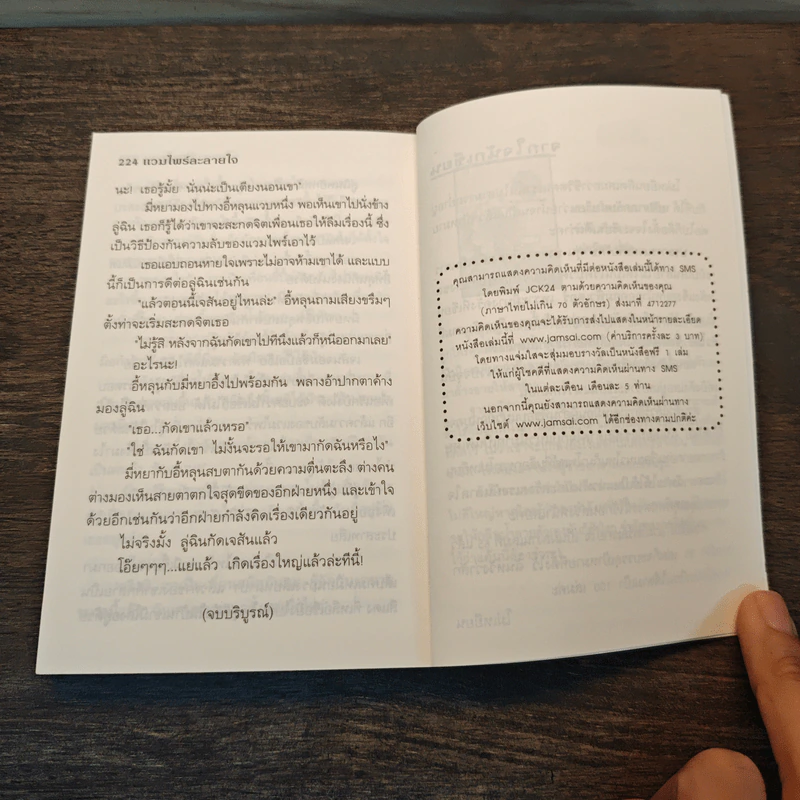 224 แวมไพร์ละลายใจ
นะ! เธอรู้มั้ย นั่นน่ะเป็นเตียงนอนเขา"
มี่หยามองไปทางอี้หลุนแวบหนึ่ง พอเห็นเขาไปนั่งข้าง
ลู่ฉิน เธอก็รู้ได้ว่าเขาจะสะกดจิตเพื่อนเธอให้ลืมเรื่องนี้ ซึ่ง
เป็นวิธีป้องกันความลับของแวมไพร์เอาไว้
เธอแอบถอนหายใจเพราะไม่อาจห้ามเขาได้ และแบบ
นี้ก็เป็นการดีต่อลู่ฉินเช่นกัน
"แล้วตอนนี้เจสันอยู่ไหนล่ะ" อี้หลุนถามเสียงขรึมๆ
ตั้งท่าจะเริ่มสะกดจิตเธอ
"ไม่รู้สิ หลังจากฉันกัดเขาไปทีนึงแล้วก็หนีออกมาเลย"
อะไรนะ!
อี้หลุนกับมี่หยาอึ้งไปพร้อมกัน พลางอ้าปากตาค้าง
มองลู่ฉิน
"เธอ...กัดเขาแล้วเหรอ"
"ใช่ ฉันกัดเขา ไม่งั้นจะรอให้เขามากัดฉันหรือไง"
มี่หยากับอี้หลุนสบตากันด้วยความตื่นตะลึง ต่างคน
ต่างมองเห็นสายตาตกใจสุดขีดของอีกฝ่ายหนึ่ง และเข้าใจ
ด้วยอีกเช่นกันว่าอีกฝ่ายกำลังคิดเรื่องเดียวกันอยู่
ไม่จริงมั้ง ลู่ฉินกัดเจสันแล้ว
โอ๊ยๆๆๆ...แย่แล้ว เกิดเรื่องใหญ่แล้วล่ะทีนี้!
(จบบริบูรณ์)
คุณสามารถแสดงความคิดเห็นที่มีต่อหนังสือเล่มนี้ได้ทาง SMS
โดยพิมพ์ JCK24 ตามด้วยความคิดเห็นของคุณ
(ภาษาไทยไม่เกิน 70 ตัวอักษร) ส่งมาที่ 4712277
ความคิดเห็นของคุณจะได้รับการส่งไปแสดงในหน้ารายละเอียด
หนังสือเล่มนี้ที่ www.jamsai.com (ค่าบริการครั้งละ 3 บาท)
โดยทางแจ่มใสจะสุ่มมอบรางวัลเป็นหนังสือฟรี 1 เล่ม
ให้แก่ผู้โชคดีที่แสดงความคิดเห็นผ่านทาง SMS
ในแต่ละเดือน เดือนละ 5 ท่าน
นอกจากนี้คุณยังสามารถแสดงความคิดเห็นผ่านทาง
เว็บไซต์ www.jamsai.com ได้อีกช่องทางตามปกติค่ะ